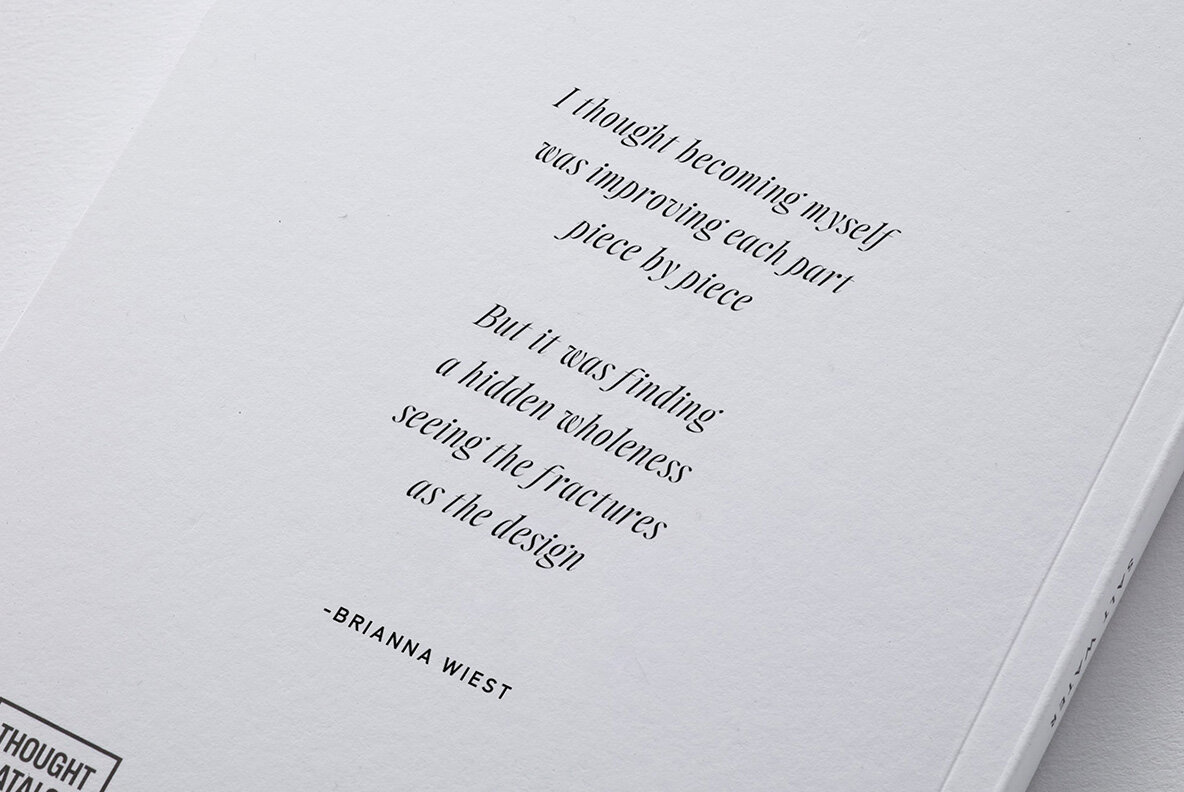 I thought becoming myself
was improving each part
piece by piece
But it was finding
a hidden wholeness
seeing the fractures
as the design
-BRIANNA WIEST
THOUGHT
SALT WATER